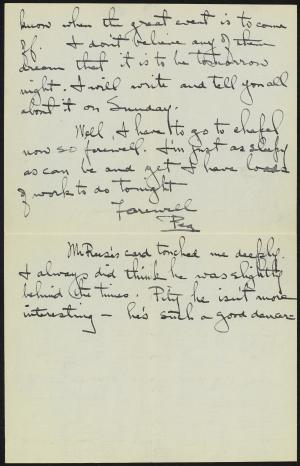 know when the great event is to come
off. I don't believe any of them
dream that it is to be tomorrow
night. I will write and tell you all
about it on Sunday.
Well I have to go to chapel
now so farewell. I'm just as sleepy
as can be and yet I have loads
of work to do tonight
Farewell
Peg
Mr Reise's card touched me deeply.
I always did think he was slightly
behind the times. Pity he isn't more
interesting – he's such a good dancer